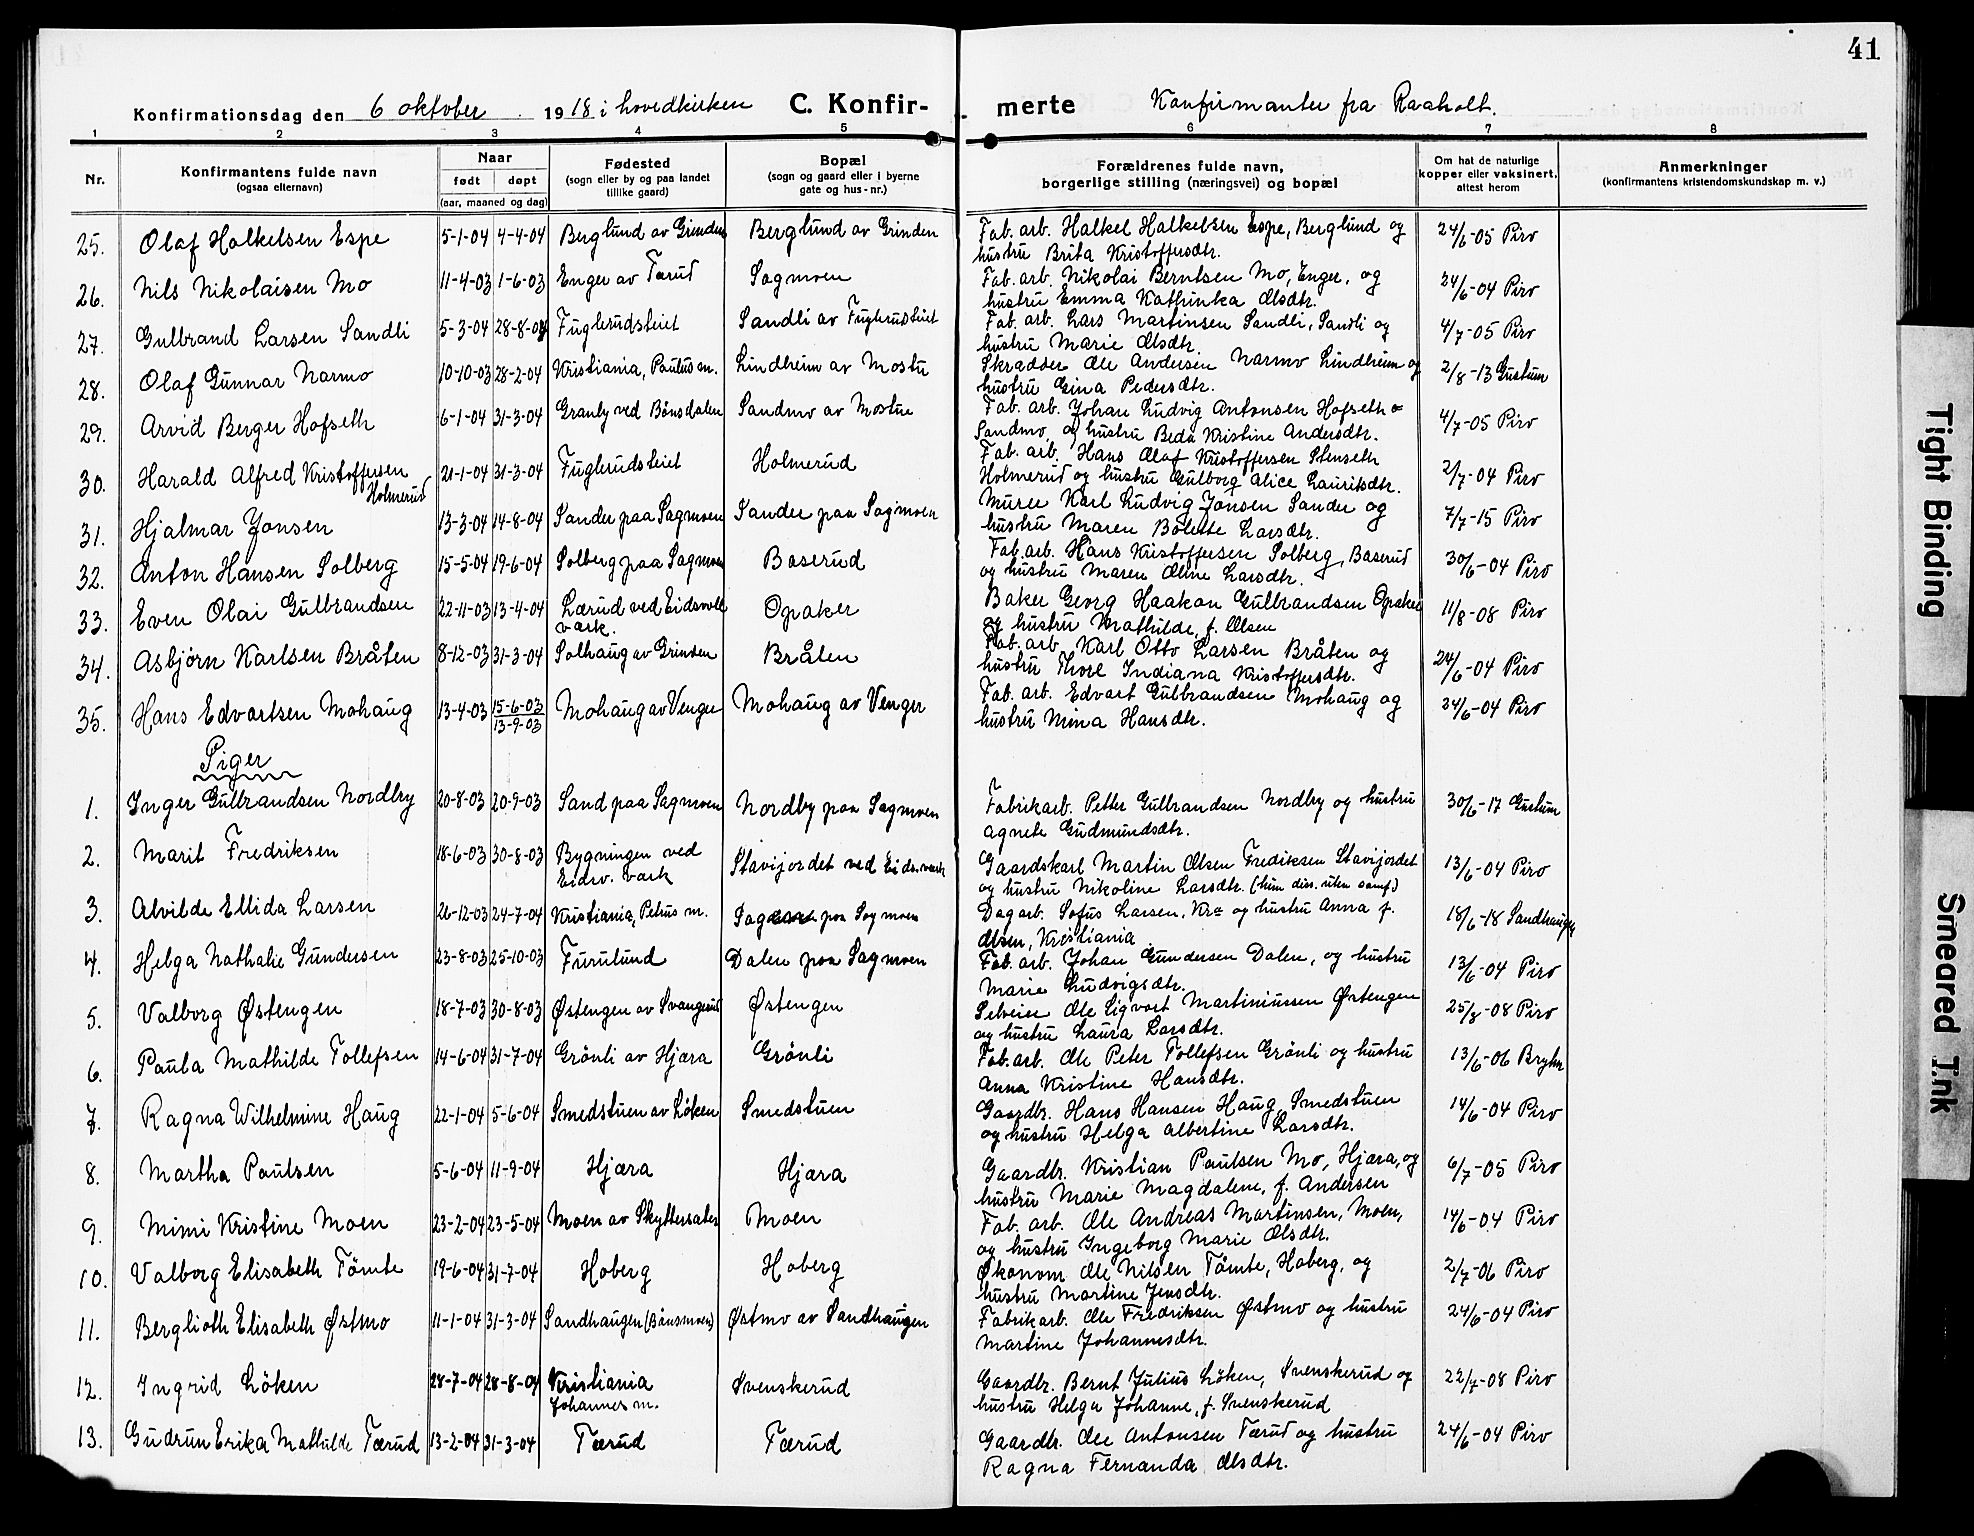 41
Konfirmationsdag den 6 oktober 1918 i hovedkirken C. Konfirmerte Konfirmanter fra Raaholt.
1 2 3 4 5 6 7 8
Nr. Konfirmantens fulde navn (ogsaa efternavn) Naar født døpt (aar, maaned og dag) Fødested (sogn eller by og paa landet tillike gaard) Bopæl (sogn og gaard eller i byerne gate og hus-nr.) Forældrenes fulde navn, borgerlige stilling (næringsvei) og bopæl Om hat de naturlige kopper eller vaksinert, attest herom Anmerkninger (konfirmantens kristendomskundskap m. v.)
25. Olaf Halkelsen Espe 5-1-04 4-4-04 Berglund av Grinden Berglund av Grinden Fab. arb. Halkel Halkelsen Espe, Berglund og 24/6-05 Piro
hustru Brita Kristoffersdtr.
26. Nils Nikolaisen Mo 11-4-03 1-6-03 Enger av Tærud Sagmoen Fab. arb. Nikolai Berntsen Mo, Enger, og 24/6-04 Piro
hustru Emma Kathinka Olsdtr.
27. Gulbrand Larsen Sandli 5-3-04 28-8-04 Fuglerudsteiet Sandli av Fuglerudsteiet Fab. arb. Lars Martinsen Sandli, Sandli og 4/7-05 Piro
hustru Marie Olsdtr.
28. Olaf Gunnar Narmo 10-10-03 28-2-04 Kristiania, Paulus m. Lindheim av Mostu Skrædder Ole Andersen Narmo Lindheim og 2/8-13 Gustum
hustru Gina Pedersdtr.
29. Arvid Berger Hofseth 6-1-04 31-3-04 Granly ved Bønsdalen Sandmo av Mostue Fab. arb. Johan Ludvig Antonsen Hofseth 4/7-05 Piro
Sandmo, og hustru Beda Kristine Andersdtr.
30. Harald Alfred Kristoffersen Holmerud 21-1-04 31-3-04 Fuglerudsteiet Holmerud Fab. arb. Hans Olaf Kristoffersen Stenseth 2/7-04 Piro
Holmerud og hustru Gulborg Alice Lauritsdtr.
31. Hjalmar Jonsen 13-3-04 14-8-04 Sander paa Sagmoen Sander paa Sagmoen Murer Karl Ludvig Jonsen Sander og 7/7-15 Piro
hustru Maren Bolette Larsdtr.
32. Anton Hansen Solberg 15-5-04 19-6-04 Solberg paa Sagmoen Baserud Fab. arb. Hans Kristoffersen Solberg, Baserud 30/6-04 Piro
og hustru Maren Oline Larsdtr.
33. Even Olai Gulbrandsen 22-11-03 13-4-04 Lærud ved Eidsvold værk. Opaker Baker Georg Haakon Gulbrandsen Opaker 11/8-08 Piro
og hustru Mathilde, f. Olsen
34. Asbjørn Karlsen Bråten 8-12-03 31-3-04 Solhaug av Grinden Bråten Fab. arb. Karl Otto Larsen Bråten og 24/6-04 Piro
hustru Thore Indiana Kristoffersdtr.
35. Hans Edvartsen Mohaug 13-4-03 15-6-03 13-9-03 Mohaug av Venger Mohaug av Venger Fab. arb. Edvart Gulbrandsen Mohaug og 24/6-04 Piro
hustru Mina Hansdtr.
Piger
1. Inger Gulbrandsen Nordby 20-8-03 20-9-03 Sand paa Sagmoen Nordby paa Sagmoen Fabrikarb. Petter Gulbrandsen Nordby og hustru 30/6-17 Gustum
Agnete Gudmundsdtr.
2. Marit Fredriksen 18-6-03 30-8-03 Bygningen ved Eidsv. værk Stavijordet ved Eids. værk Gaardskarl Martin Olsen Fredriksen Stavijordet 13/6-04 Piro
og hustru Nikoline Larsdtr. (hun diss. uten samf.)
3. Alvilde Ellida Larsen 26-12-03 24-7-04 Kristiania, Petrus m. paa Sagmoen Dagarb. Sofus Larsen, Kra og hustru Anna f. 18/6-18 Sandhaugen
Olsen, Kristiania
4. Helga Nathalie Gundersen 23-8-03 25-10-03 Furulund Dalen paa Sagmoen Fab. arb. Johan Gundersen Dalen, og hustru 13/6-04 Piro
Marie Ludvigsdtr.
5. Valborg Østengen 18-7-03 30-8-03 Østengen av Svangerud Østengen Selveier Ole Sigvart Martiniussen Østengen 25/8-08 Piro
og hustru Laura Larsdtr.
6. Paula Mathilde Tollefsen 14-6-04 31-7-04 Grønli av Hjæra Grønli Fab. arb. Ole Peter Tollefsen Grønli og hustru 13/6-06 Bryhn
Anna Kristine Hansdtr.
7. Ragna Wilhelmine Haug 22-1-04 5-6-04 Smedstuen av Løken Smedstuen Gaardbr. Hans Hansen Haug, Smedstuen 14/6-04 Piro
og hustru Helga Albertine Larsdtr.
8. Martha Paulsen 5-6-04 11-9-04 Hjæra Hjæra Gaardbr. Kristian Paulsen Mo, Hjæra, og 6/7-05 Piro
hustru Marie Magdalene, f. Andersen
9. Mimi Kristine Moen 23-2-04 23-5-04 Moen av Skyttersæter Moen Fab. arb. Ole Andreas Martinsen, Moen, 14/6-04 Piro
og hustru Ingeborg Marie Olsdtr.
10. Valborg Elisabeth Tømte 19-6-04 31-7-04 Hoberg Hoberg Økonom Ole Nilsen Tømte, Hoberg, og 2/7-06 Piro
hustru Martine Jensdtr.
11. Berglioth Elisabeth Østmo 11-1-04 31-3-04 Sandhaugen (Bønsmoen) Østmo av Sandhaugen Fabrikarb. Ole Fredriksen Østmo og hustru 24/6-04 Piro
Martine Johannesdtr.
12. Ingrid Løken 28-7-04 28-8-04 Kristiania Johannes m. Svenskerud Gaardbr. Bernt Julius Løken, Svenskerud og 22/7-08 Piro
hustru Helga Johanne, f. Svenskerud
13. Gudrun Erika Mathilde Tærud 13-2-04 31-3-04 Tærud Tærud Gaardbr. Ole Antonsen Tærud og hustru 24/6-04 Piro
Ragna Fernanda Olsdtr.
Tight Binding
Smeared Ink